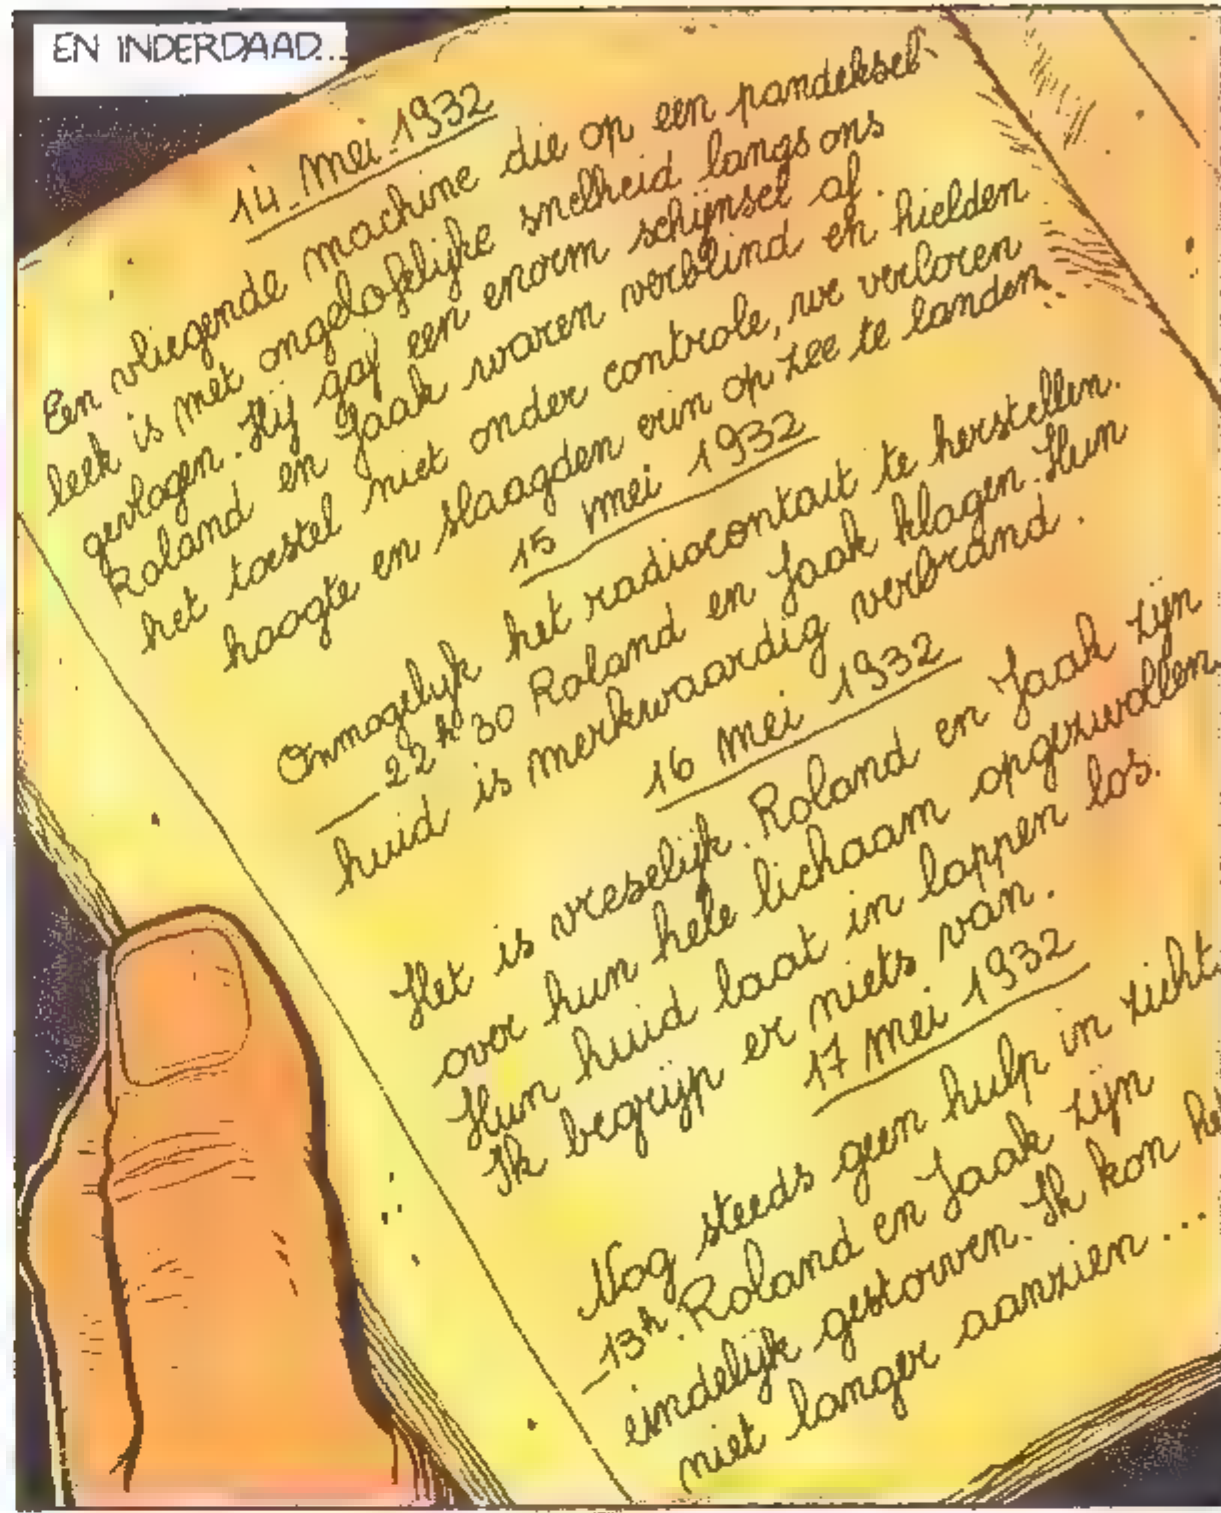 EN INDERDAAD...
14 mei 1932
Een vliegende machine die op een pandeksel
leek is met ongelofelijke snelheid langs ons
gevlogen. Hij gaf een enorm schijnsel af.
Roland en Jaak waren verblind en hielden
het toestel niet onder controle, we verloren
hoogte en slaagden erin op zee te landen.
15 mei 1932
Onmogelijk het radiocontait te herstellen.
22h30 Roland en Jaak klagen. Hun
huid is merkwaardig verbrand.
16 mei 1932
Het is vreselijk. Roland en Jaak zijn
over hun hele lichaam opgezwollen.
Hun huid laat in lappen los.
Ik begrijp er niets van.
17 mei 1932
Nog steeds geen hulp in zicht.
13h. Roland en Jaak zijn
eindelijk gestorven. Ik kon het
niet langer aanzien...